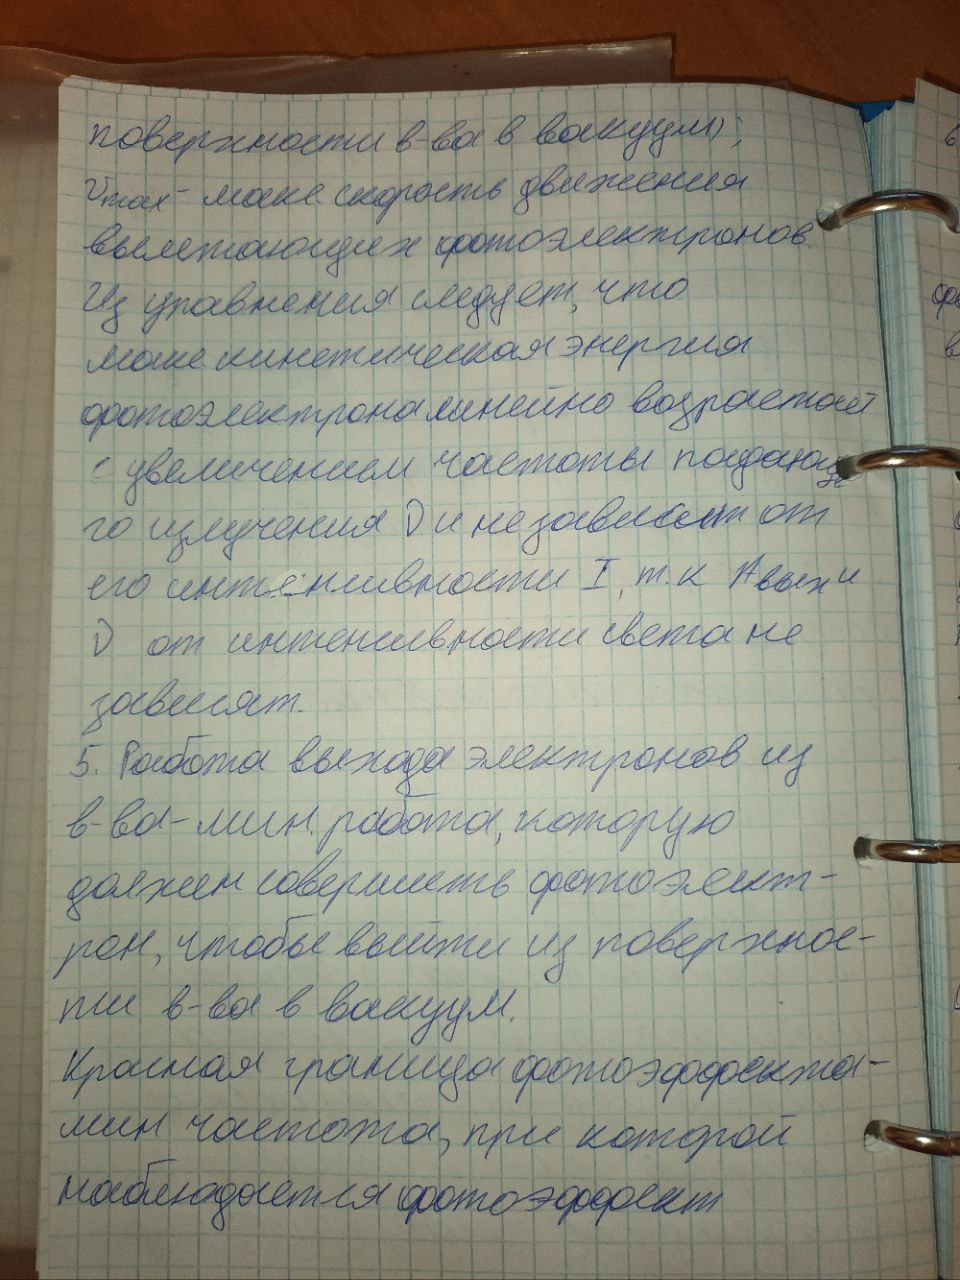 поверхности в-ва в вакуум;
υmax - макс скорость движения
вылетающих фотоэлектронов.
Из уравнения следует, что
макс кинетическая энергия
фотоэлектрона линейно возрастает
с увеличением частоты падающе
го излучения ν и не зависит от
его интенсивности I, т.к Aвых и
ν от интенсивности света не
зависят.
5. Работа выхода электронов из
в-ва - мин. работа, которую
должен совершить фотоэлект-
рон, чтобы выйти из поверхнос-
ти в-ва в вакуум.
Красная граница фотоэффекта -
мин частота, при которой
наблюдается фотоэффект